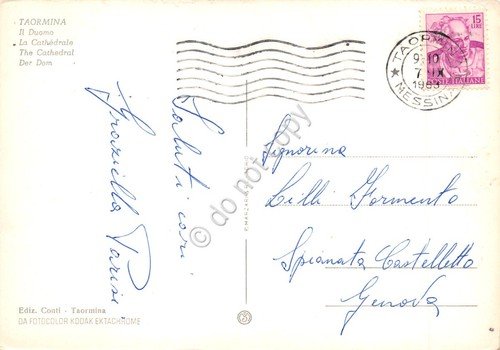 TAORMINA
Il Duomo
La Cathédrale
The Cathedral
Der Dom
15
LIRE
POSTE ITALIANE
TAORMINA
9-10
7 IX
1963
MESSINA
Saluti cari
Graziella Parisi
Signorina
Lilli Formento
Spianata Castelletto
Genova
do not copy
Ediz. Conti - Taormina
DA FOTOCOLOR KODAK EKTACHROME
3